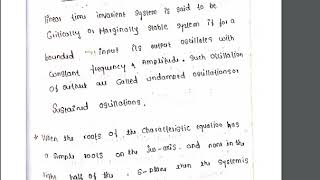 linear time invarient system is said to be
Critically or Marginally stable system if for a
bounded input its output oscillates with
Constant frequency & Amplitude, such oscillation
of output are called undamped oscillations or
Sustained oscillations.
* When the roots of the characteristic equation has
a simple roots on the jω-axis and none in the
right half of the s-plane than the system is